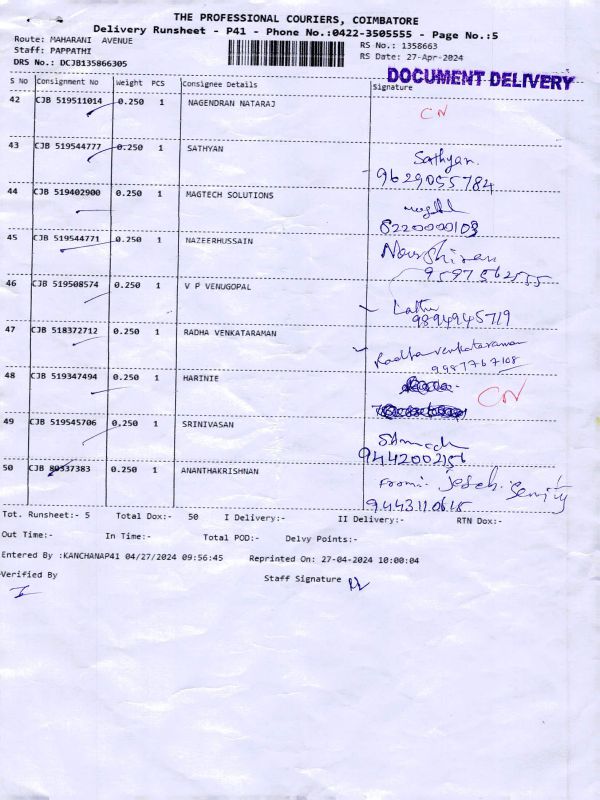 THE PROFESSIONAL COURIERS, COIMBATORE
Delivery Runsheet - P41 - Phone No.:0422-3505555 - Page No.:5
Route: MAHARANI AVENUE
RS No.: 1358663
Staff: PAPPATHI
RS Date: 27-Apr-2024
DRS No.: DCJB135866305
DOCUMENT DELIVERY
S No Consignment No Weight PCS Consignee Details Signature
42 CJB 519511014 0.250 1 NAGENDRAN NATARAJ CN
43 CJB 519544777 0.250 1 SATHYAN Sathyan.
9629055784
44 CJB 519402900 0.250 1 MAGTECH SOLUTIONS
6220000103
45 CJB 519544771 0.250 1 NAZEERHUSSAIN
9597562555
46 CJB 519508574 0.250 1 V P VENUGOPAL
9894945719
47 CJB 518372712 0.250 1 RADHA VENKATARAMAN Radha venkataraman
9987767108
48 CJB 519347494 0.250 1 HARINIE CN
49 CJB 519545706 0.250 1 SRINIVASAN
9442002156
50 CJB 80537383 0.250 1 ANANTHAKRISHNAN
Tot. Runsheet:- 5 Total Dox:- 50 I Delivery:- II Delivery:- RTN Dox:-
Out Time:- In Time:- Total POD:- Delvy Points:-
Entered By :KANCHANAP41 04/27/2024 09:56:45 Reprinted On: 27-04-2024 10:00:04
Verified By Staff Signature